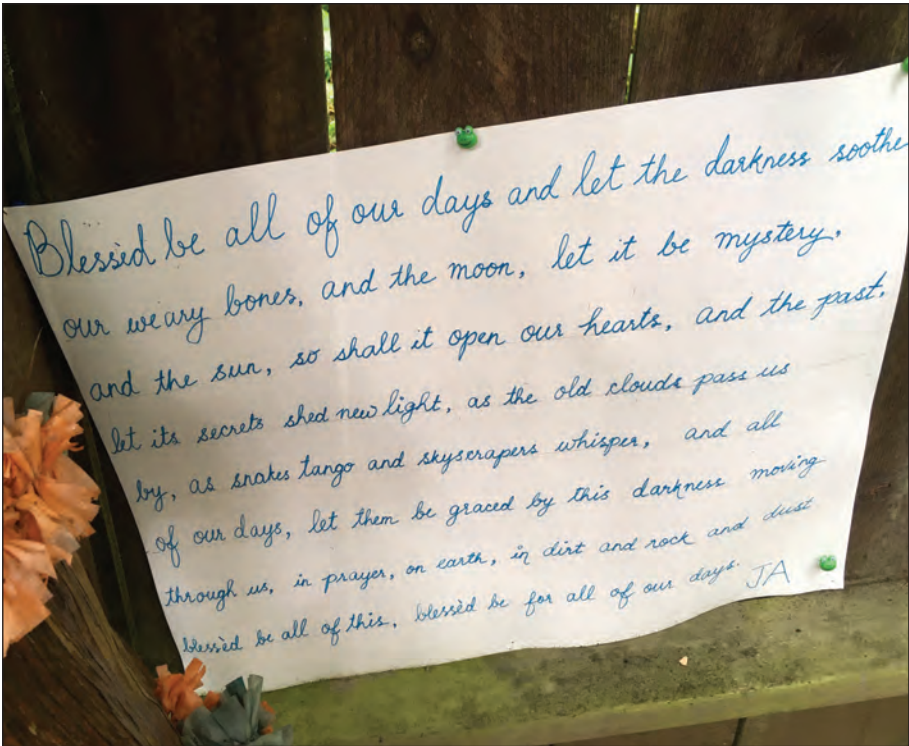 Blessèd be all of our days and let the darkness soothe
our weary bones, and the moon, let it be mystery,
and the sun, so shall it open our hearts, and the past,
let its secrets shed new light, as the old clouds pass us
by, as snakes tango and skyscrapers whisper, and all
of our days, let them be graced by this darkness moving
through us, in prayer, on earth, in dirt and rock and dust
blessèd be all of this, blessèd be for all of our days. JA